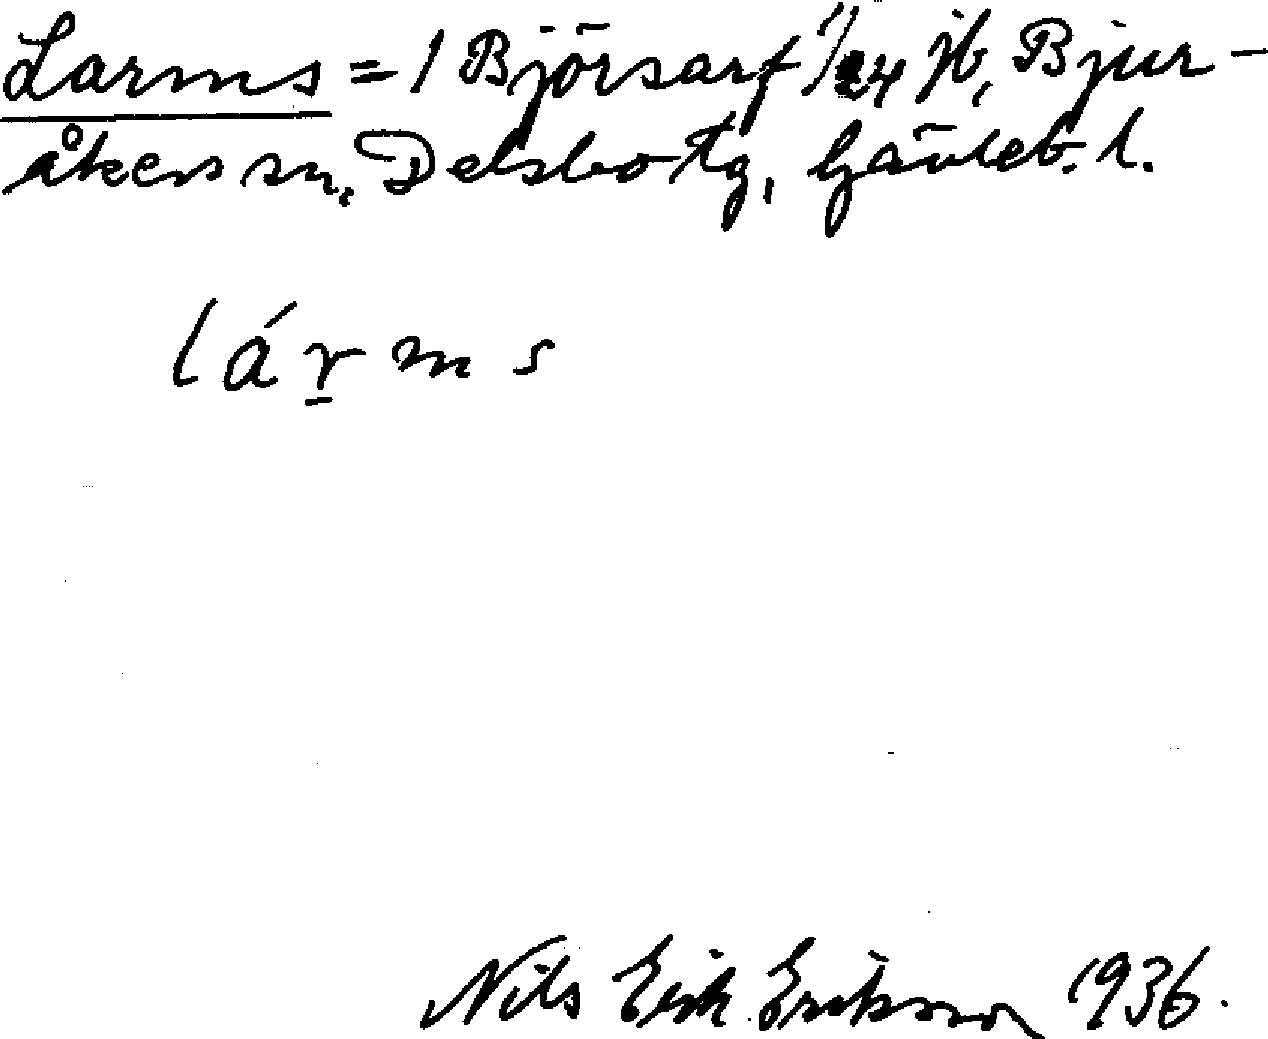 Larms = 1 Björsarf 1/24 jb, Bjur-
åkers sn, Delsbo tg, Gävleb. l.
lárms
Nils Erik Eriksson 1936.